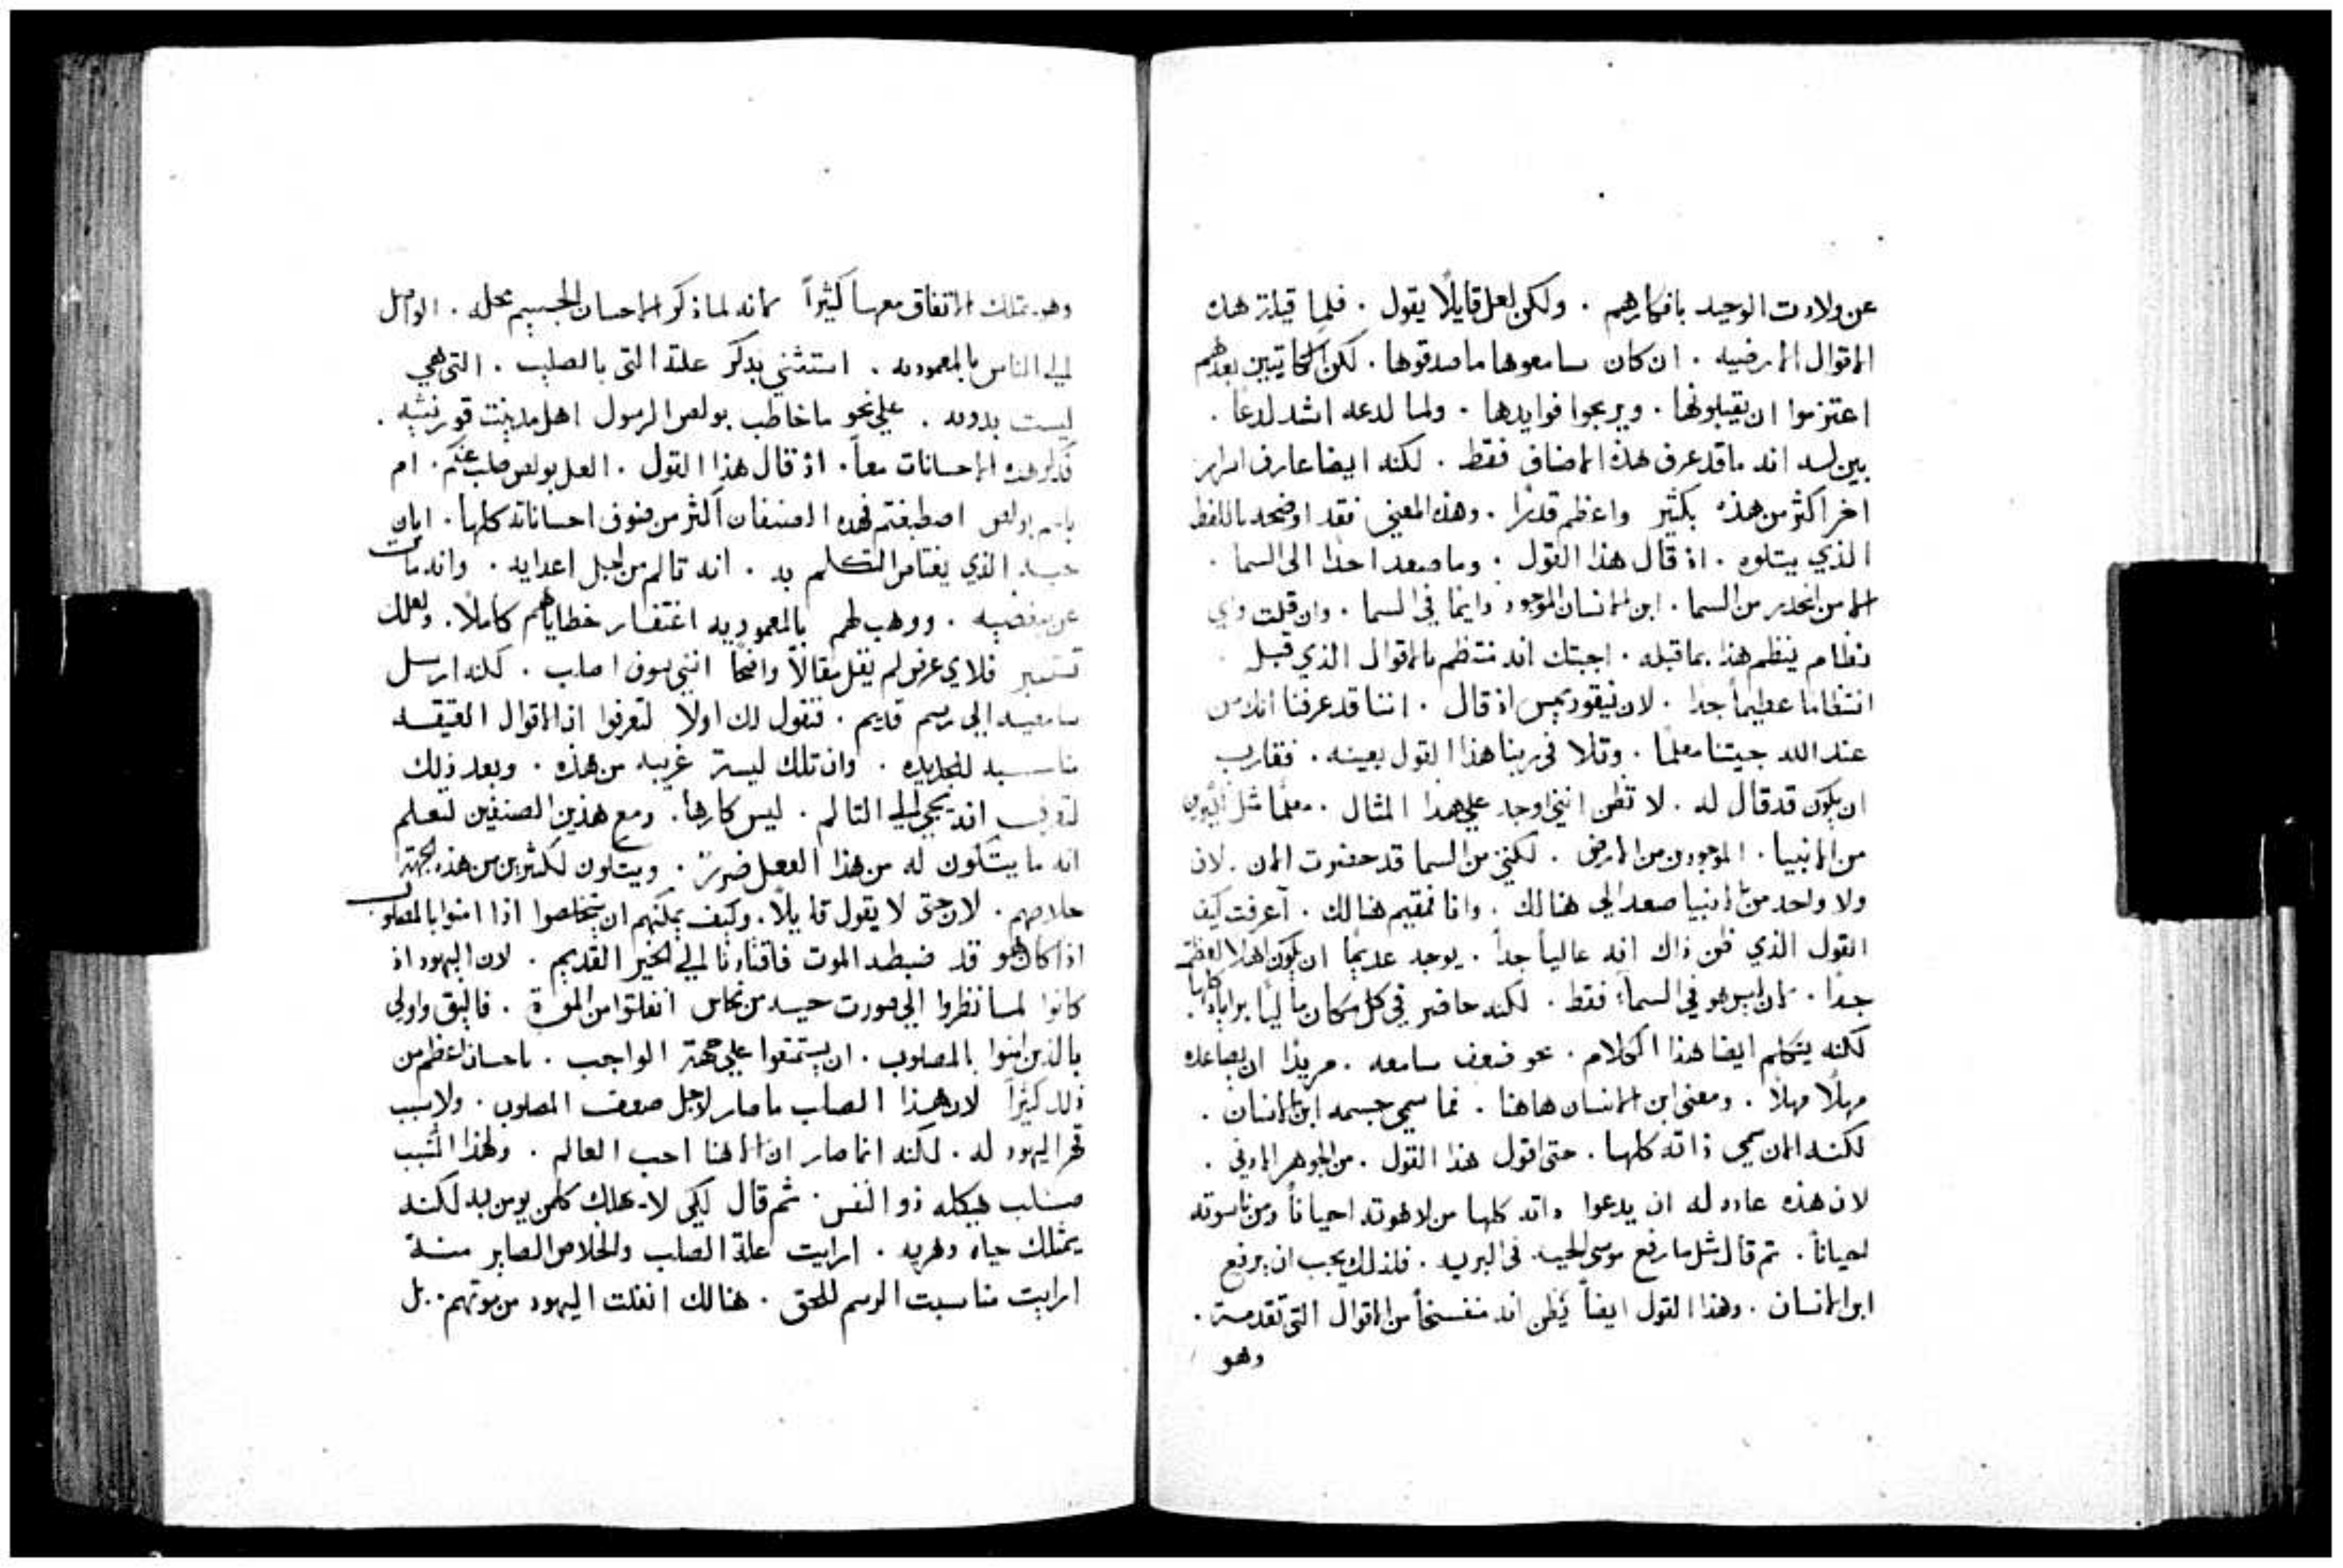 عن ولادت الوحيد بافكارهم . ولكن لعل قايلًا يقول . فلما قيلة هذه
الاقوال الارضيه . ان كان سامعوها ما صدقوها . لكن الحاتيين بعدهم
اعتزموا ان يقبلونها . ويربحوا فوايدها . ولما لدعه اشد لدعًا .
بين لسه انه ما قد عرف هذه الاصناف فقط . لكنه ايضا عارف اسرار
اخر اكثر من هذه بكثير واعظم قدرًا . وهذه المعني فقد اوضحه باللفظ
الذي يتلوه . اذ قال هذا القول . وما صعد احدًا الى السما .
الا من انحدر من السما . ابن الانسان الموجود دايما في السما . وان قلت واي
نظام ينظم هذا بما قبله . اجبتك انه منتظم بالاقوال الذي قبله
انتظاما عظيماً جدًا . لان نيقوديمس اذ قال . اننا قد عرفنا انك من
عند الله جيتنا معلمًا . وتلا في ربنا هذا القول بعينه . فقارب
ان يكون قد قال له . لا تظن انني اوجد علي هذا المثال . معلمًا مثل كثيرين
من الانبيا . الموجودين من الارض . لكنني من السما قد حضرت الان . لان
ولا واحد من الانبيا صعد الى هنالك . وانا فمقيم هنالك . أعرفت كيف
القول الذي ظن ذاك انه عالياً جداً . يوجد عديمًا ان يكون اهلا لعظمته
جدًا . لان ليس هو في السماء فقط . لكنه حاضر في كل مكان ماليًا براياه كلها .
لكنه يتكلم ايضا هذا الكلام . نحو ضعف سامعه . مريدًا ان يصاعده
مهلًا مهلًا . ومعنى ابن الانسان هاهنا . فما سمي جسمه ابن الانسان .
لكنه الان سمي ذاته كلها . حتى اقول هذا القول . من الجوهر الادني .
لان هذه عاده له ان يدعوا ذاته كلها من لاهوته احياناً ومن ناسوته
احياناً . ثم قال مثل ما رفع موسى الحيه في البريه . فلذلك يجب ان يرفع
ابن الانسان . وهذا القول ايضاً يظن انه منفسخاً من الاقوال التي تقدمته .
وهو
وهو يمتلك الاتفاق معها كثيراً لانه لما ذكر الاحسان الجسيم محله . الواصل
الي الناس بالمعموديه . استثني بذكر علته التي بالصليب . التي هي
ليست بدونه . علي نحو ما خاطب بولص الرسول اهل مدينت قورنثيه .
فذكر هذه الاحسانات معاً . اذ قال هذا القول . العل بولص صلب عنكم . ام
باسم بولص اصطبغتم فهذه الصنفان اكثر من صنوف احساناته كلها . ابان
حبه الذي يفتاص التكلم به . انه تالم من اجل اعدايه . وانه مات
عن مبغضيه . ووهب لهم بالمعموديه اغتفار خطاياهم كاملًا . ولعلك
تستخبر فلاي غرض لم يقل مقالًا واضحًا انني سوف اصلب . لكنه ارسل
سامعيه الي رسم قديم . فنقول لك اولاً لتعرفوا ان الاقوال العتيقه
مناسبه للجديده . وان تلك ليست غريبه من هذه . وبعد ذلك
لتعرف انه يجي الي التالم . ليس كارها . ومع هذين الصنفين لتعلم
انه ما يتكون له من هذا الفعل ضررًا . ويتكون لكثيرين من هذه الجهة
خلاصهم . لان حتى لا يقول قايلاً . وكيف يمكنهم ان يتخلصوا اذا امنوا بالمصلوب
اذا كان هو قد ضبطه الموت فاقتادنا الي الخبر القديم . لان اليهود اذ
كانوا لما نظروا الي صورت حيه من نحاس انفلتوا من الموت . فاليق واولى
بالذين امنوا بالمصلوب . ان يستمتعوا علي جهة الواجب . باحسان اعظم من
ذلك كثيراً لان هذا الصلب ما صار لاجل ضعف المصلوب . ولا بسبب
قهر اليهود له . لكنه انما صار ان الاهنا احب العالم . ولهذا السبب
صلب هيكله ذو النفس . ثم قال لكي لا يهلك كلمن يومن به لكنه
يمتلك حياه دهريه . ارايت علة الصلب والخلاص الصاير منه
ارايت مناسبت الرسم للحق . هنالك انفلت اليهود من موتهم . بل